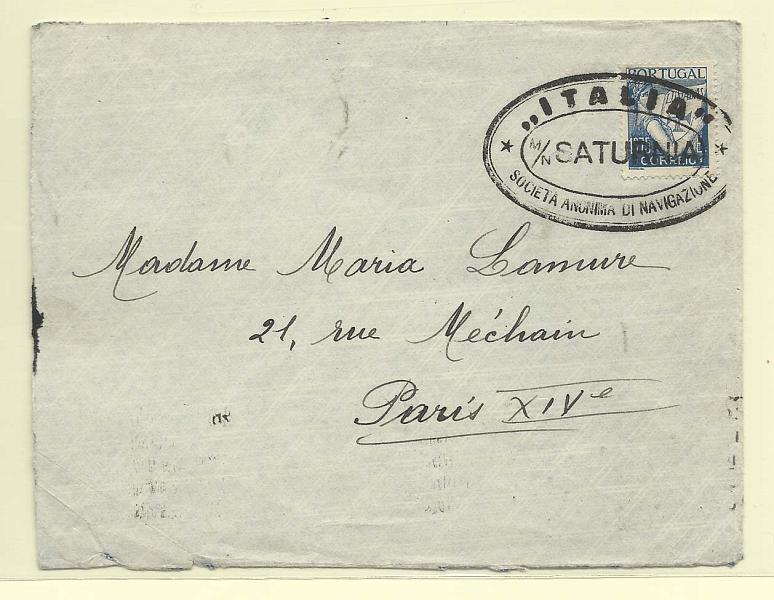 PORTUGAL
„ITALIA“
M/N SATURNIA
CORREIO
SOCIETÀ ANONIMA DI NAVIGAZIONE
Madame Maria Lamure
21, rue Méchain
Paris XIVe